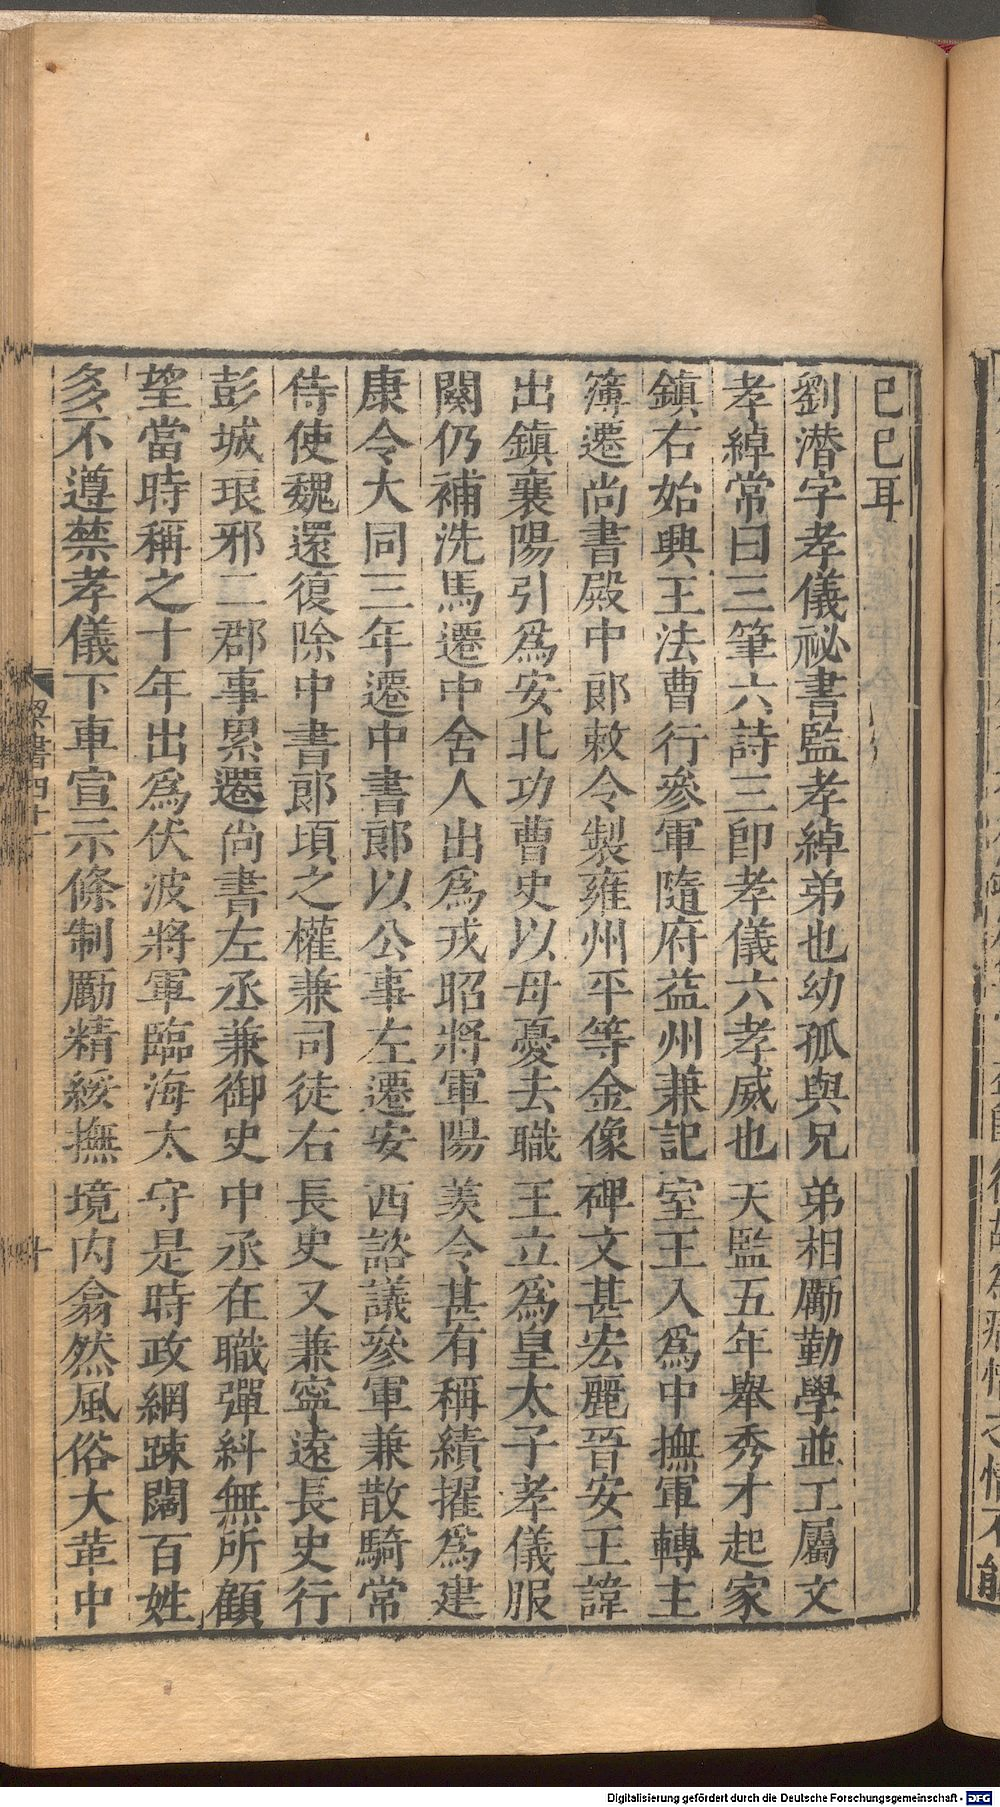 已已耳
劉潛字孝儀祕書監孝綽弟也幼孤與兄弟相勵勤學並工屬文
孝綽常曰三筆六詩三卽孝儀六孝威也天監五年舉秀才起家
鎮右始興王法曹行參軍隨府益州兼記室王入爲中撫軍轉主
簿遷尚書殿中郎敕令製雍州平等金像碑文甚宏麗晉安王諱
出鎮襄陽引爲安北功曹史以母憂去職王立爲皇太子孝儀服
闋仍補洗馬遷中舍人出爲戎昭將軍陽羨令甚有稱績擢爲建
康令大同三年遷中書郎以公事左遷安西諮議參軍兼散騎常
侍使魏還復除中書郎頃之權兼司徒右長史又兼寧遠長史行
彭城琅邪二郡事累遷尚書左丞兼御史中丞在職彈糾無所顧
望當時稱之十年出爲伏波將軍臨海太守是時政網踈闊百姓
多不遵禁孝儀下車宣示條制勵精綏撫境内翕然風俗大革中
梁書四十一
十
Digitalisierung gefördert durch die Deutsche Forschungsgemeinschaft - DFG